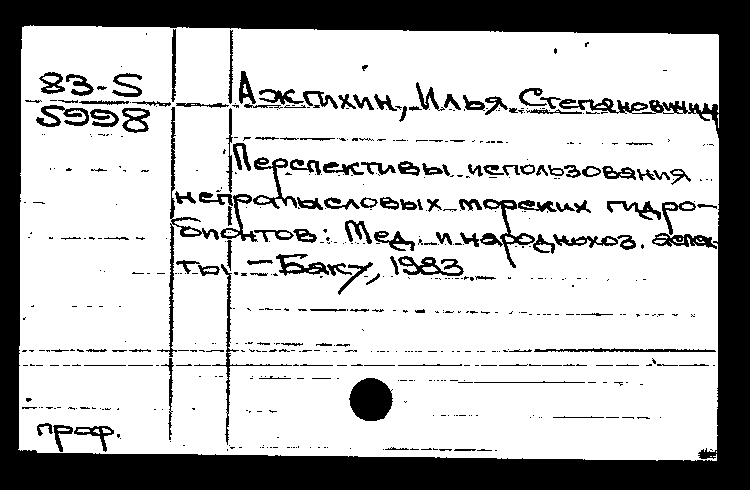 83-5
5998
Ажгихин, Илья Степанович
Перспективы использования
непромысловых морских гидро-
бионтов: Мед. и народнохоз. аспек
ты. — Баку, 1983
проф.